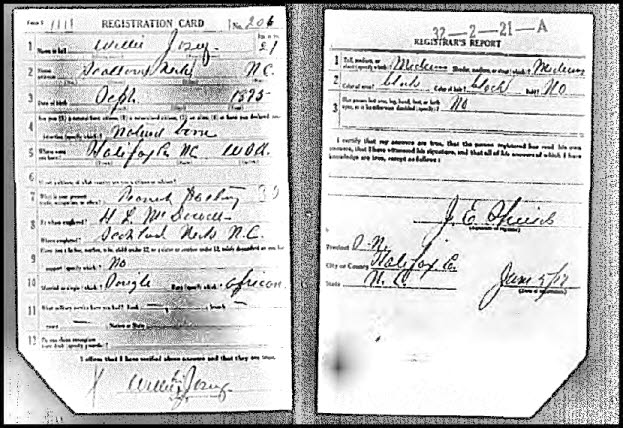 Form 1 1111 REGISTRATION CARD No. 206
1 Name in full Willie Josey 21
2 Home address Scotland Neck N.C.
3 Date of birth
4 Are you (1) a natural-born citizen, (2) a naturalized citizen, (3) an alien, (4) or have you declared your
intention (specify which)?
5 Where were you born? Halifax Co NC
6 If not a citizen, of what country are you a citizen or subject?
7 What is your present trade, occupation, or office?
8 By whom employed?
Where employed? Scotland Neck N.C.
9 Have you a father, mother, wife, child under 12, or a sister or brother under 12, solely dependent on you for
support (specify which)? No
10 Married or single (which)? Single Race (specify which)? African
11 What military service have you had? Rank — branch —
years — Nation or State
12 Do you claim exemption from draft (specify grounds)?
I affirm that I have verified above answers and that they are true.
Willie Josey
32—2—21—A
REGISTRAR'S REPORT
1 Tall, medium, or short (specify which)? Medium Slender, medium, or stout (which)? Medium
2 Color of eyes? black Color of hair? black Bald? No
3 Has person lost arm, leg, hand, foot, or both eyes, or is he otherwise disabled (specify)? No
I certify that my answers are true, that the person registered has read his own
answers, that I have witnessed his signature, and that all of his answers of which I have
knowledge are true, except as follows:
J. E.
(Signature of registrar)
Precinct
City or County Halifax Co.
State N. C. June 5/17
(Date of registration)